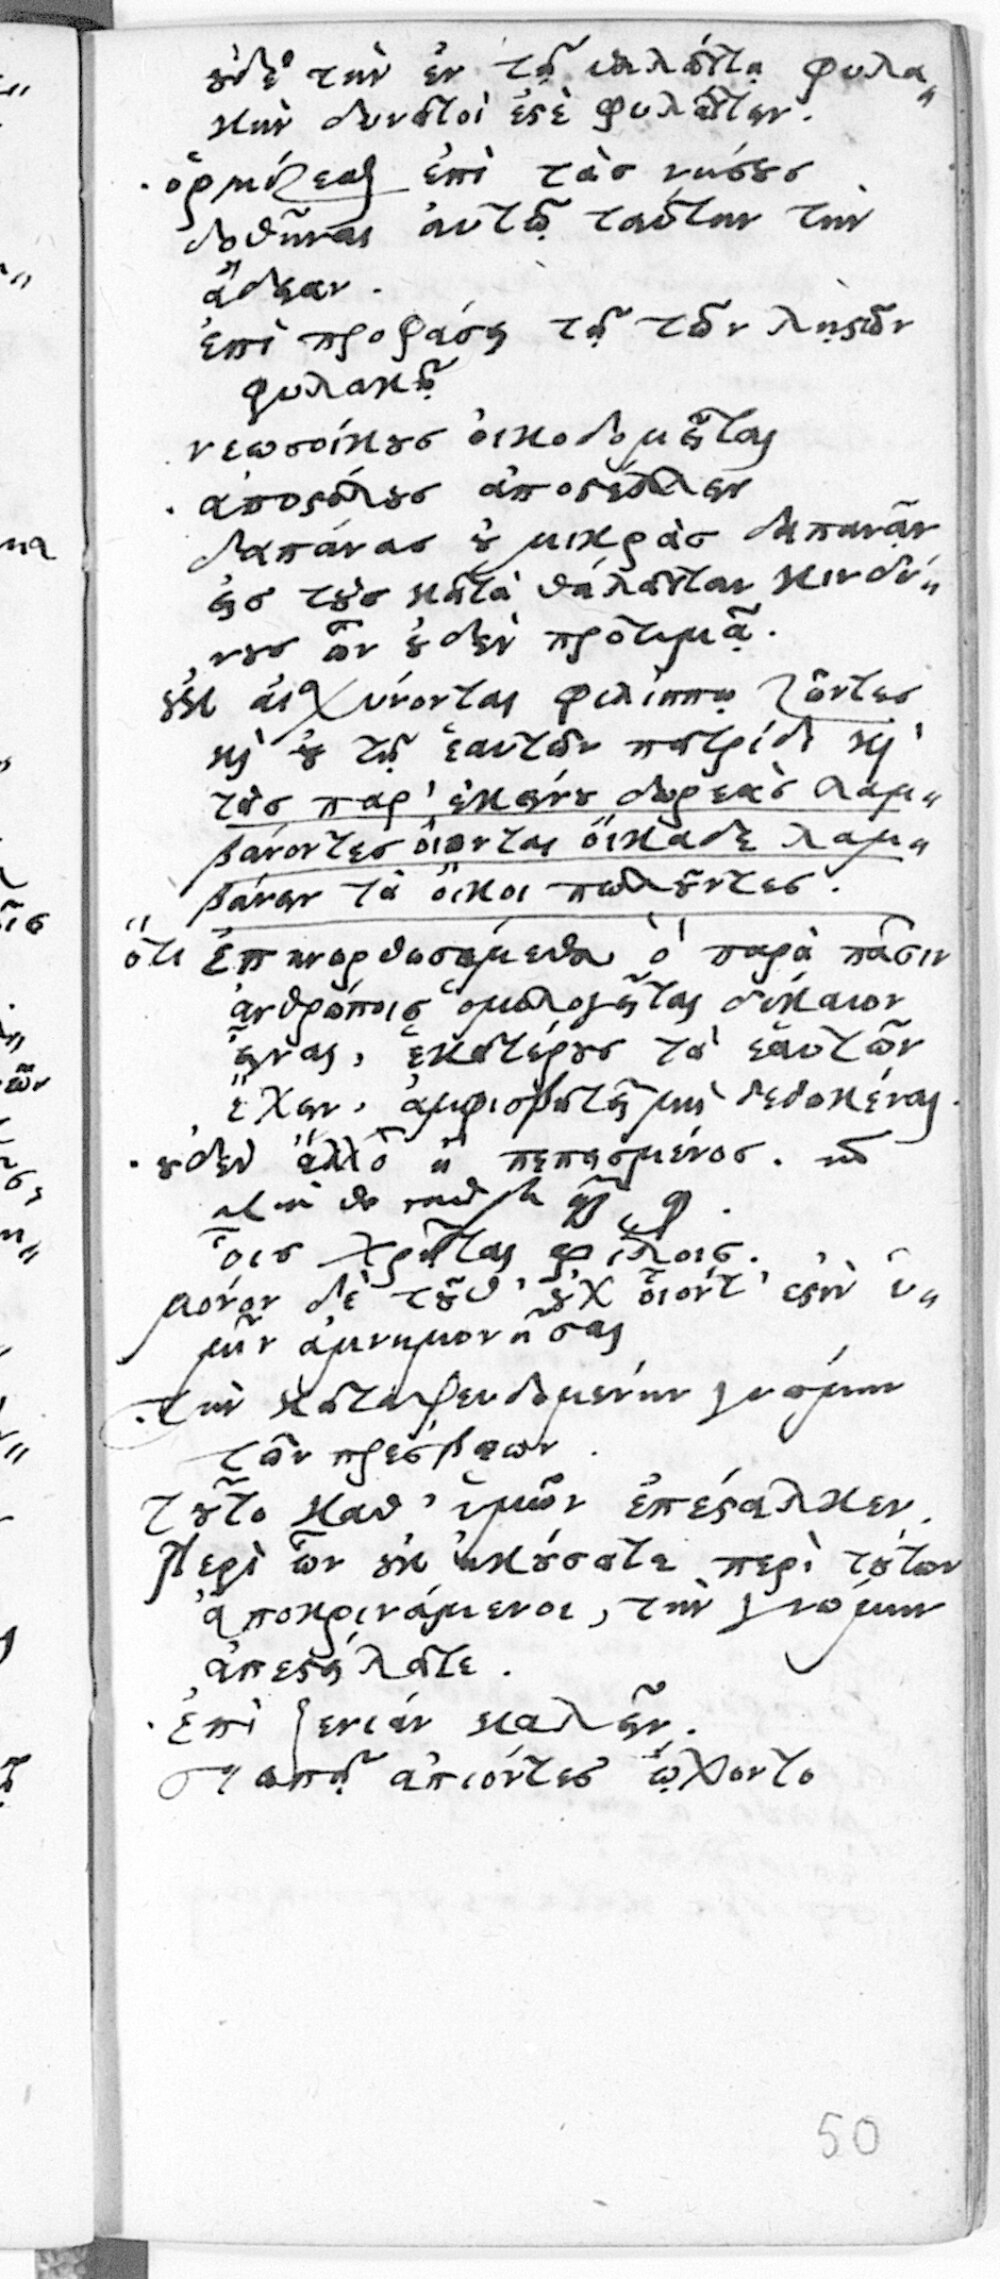 οὐδὲ τὴν ἐν τῇ θαλάττῃ φυλα„
κὴν δυνατοί ἐστὲ φυλάττειν.
. ὁρμίζεσθαι ἐπὶ τὰς νήσους
δοθῆναι αὐτῷ ταύτην τὴν
ἄδειαν.
ἐπὶ προφάσει τῇ τῶν λῃστῶν
φυλακῇ
νεωσοίκους οἰκοδομεῖται
. ἀποστόλους ἀποστέλλειν
δαπάνας οὐ μικρὰς δαπανᾷν
εἰς τοὺς κατὰ θάλατταν κινδύ„
νους ὧν οὐδὲν προτιμᾷ.
οὐκ αἰσχύνονται φιλίππῳ ζῶντες
καὶ οὐ τῇ ἑαυτῶν πατρίδι καὶ
τὰς παρ' ἐκείνου δωρεὰς λαμ„
βάνοντες οἴονται οἴκαδε λαμ„
βάνειν τὰ οἴκοι πωλοῦντες.
ὅτι ἐπηνορθωσάμεθα ὃ παρὰ πᾶσιν
ἀνθρώποις ὁμολογεῖται δίκαιον
εἶναι, ἑκατέρους τὰ ἑαυτῶν
ἔχειν. ἀμφισβητεῖ μὴ δεδωκέναι.
. οὐδὲν ἄλλο ἢ πεπεισμένος.
οἷς χρῆται φίλοις.
μόνον δὲ τοῦθ' οὐχ οἷόντ' ἐστὶν ὑ„
μῖν ἀμνημονῆσαι
. τὴν καταψευδομένην γνώμην
τῶν πρέσβεων.
τοῦτο καθ' ὑμῶν ἐπέσταλκεν.
Περὶ ὧν οὐκ ἠκούσατε περὶ τούτων
ἀποκρινάμενοι, τὴν γνώμην
ἀπεστείλατε.
. ἐπὶ ξενίαν καλεῖν.
σιωπῇ ἀπιόντες ᾤχοντο
50